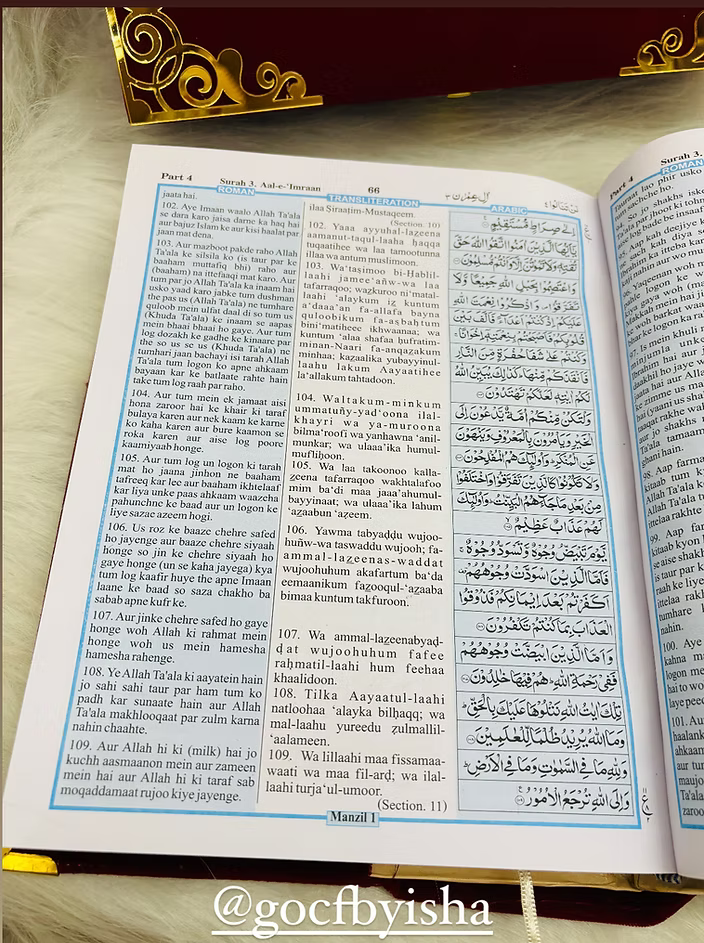 Part 4
Surah 3. Aal-e-'Imraan
66
اٰلِ عِمْرٰن ٣
لَنْ تَنَالُوا ٤
ROMAN
TRANSLITERATION
ARABIC
jaata hai.
102. Aye Imaan waalo Allah Ta'ala
se dara karo jaisa darne ka haq hai
aur bajuz Islam ke aur kisi haalat par
jaan mat dena.
103. Aur mazboot pakde raho Allah
Ta'ala ke silsila ko (is taur par ke
baaham muttafiq bhi) raho aur
(baaham) na ittefaaqi mat karo. Aur
tum par jo Allah Ta'ala ka inaam hai
usko yaad karo jabke tum dushman
the pas us (Allah Ta'ala) ne tumhare
quloob mein ulfat daal di so tum us
(Khuda Ta'ala) ke inaam se aapas
mein bhaai bhaai ho gaye. Aur tum
log dozakh ke gadhe ke kinaare par
the so us se us (Khuda Ta'ala) ne
tumhari jaan bachayi ist tarah Allah
Ta'ala tum logon ko apne ahkaam
bayaan kar ke batlaate rahte hain
take tum log raah par raho.
104. Aur tum mein ek jamaat aisi
hona zaroor hai ke khair ki taraf
bulaya karen aur nek kaam ke karne
ko kaha karen aur bure kaamon se
roka karen aur aise log poore
kaamiyaab honge.
105. Aur tum log un logon ki tarah
mat ho jaana jinhon ne baaham
tafreeq kar lee aur baaham ikhtelaaf
kar liya unke paas ahkaam waazeha
pahunchne ke baad aur un logon ke
liye sazae azeem hogi.
106. Us roz ke baaze chehre safed
ho jayenge aur baaze chehre siyaah
honge so jin ke chehre siyaah ho
gaye honge (un se kaha jayega) kya
tum log kaafir huye the apne Imaan
laane ke baad so saza chakho ba
sabab apne kufr ke.
107. Aur jinke chehre safed ho gaye
honge woh Allah ki rahmat mein
honge woh us mein hamesha
hamesha rahenge.
108. Ye Allah Ta'ala ki aayatein hain
jo sahi sahi taur par ham tum ko
padh kar sunaate hain aur Allah
Ta'ala makhlooqaat par zulm karna
nahin chaahte.
109. Aur Allah hi ki (milk) hai jo
kuchh aasmaanon mein aur zameen
mein hai aur Allah hi ki taraf sab
moqaddamaat rujoo kiye jayenge.
ilaa Ṣiraaṭim-Mustaqeem.
(Section. 10)
102. Yaaa ayyuhal-lazeena
aamanut-taqul-laaha ḥaqqa
tuqaatihee wa laa tamootunna
illaa wa antum muslimoon.
103. Wa'taṣimoo bi-Ḥablil-
laahi jamee'añw-wa laa
tafarraqoo; wazkuroo ni'matal-
laahi 'alaykum iz kuntum
a'daaa'an fa-allafa bayna
quloobikum fa-aṣbaḥtum
bini'matiheee ikhwaanaa; wa
kuntum 'alaa shafaa ḥufratim-
minan-Naari fa-anqazakum
minhaa; kazaalika yubayyinul-
laahu lakum Aayaatihee
la'allakum tahtadoon.
104. Waltakum-minkum
ummatuñy-yad'oona ilal-
khayri wa ya-muroona
bilma'roofi wa yanhawna 'anil-
munkar; wa ulaaa'ika humul-
mufliḥoon.
105. Wa laa takoonoo kalla-
zeena tafarraqoo wakhtalafoo
mim ba'di maa jaaa'ahumul-
bayyinaat; wa ulaaa'ika lahum
'azaabun 'aẓeem.
106. Yawma tabyaḍḍu wujoo-
huñw-wa taswaddu wujooh; fa-
ammal-lazeenas-waddat
wujoohuhum akafartum ba'da
eemaanikum fazooqul-'azaaba
bimaa kuntum takfuroon.
107. Wa ammal-lazeenabyaḍ-
ḍat wujoohuhum fafee
raḥmatil-laahi hum feehaa
khaalidoon.
108. Tilka Aayaatul-laahi
natloohaa 'alayka bilḥaqq; wa
mal-laahu yureedu zulmallil-
'aalameen.
109. Wa lillaahi maa fissamaa-
waati wa maa fil-arḍ; wa ilal-
laahi turja'ul-umoor.
(Section. 11)
اِلٰى صِرَاطٍ مُّسْتَقِيْمٍ
يٰۤاَيُّهَا الَّذِيْنَ اٰمَنُوا اتَّقُوا اللّٰهَ حَقَّ
تُقٰتِهٖ وَلَا تَمُوْتُنَّ اِلَّا وَاَنْتُمْ مُّسْلِمُوْنَ
وَاعْتَصِمُوْا بِحَبْلِ اللّٰهِ جَمِيْعًا وَّلَا
تَفَرَّقُوْا وَاذْكُرُوْا نِعْمَتَ اللّٰهِ
عَلَيْكُمْ اِذْ كُنْتُمْ اَعْدَآءً فَاَلَّفَ بَيْنَ
قُلُوْبِكُمْ فَاَصْبَحْتُمْ بِنِعْمَتِهٖۤ اِخْوَانًا
وَكُنْتُمْ عَلٰى شَفَا حُفْرَةٍ مِّنَ النَّارِ
فَاَنْقَذَكُمْ مِّنْهَا كَذٰلِكَ يُبَيِّنُ اللّٰهُ
لَكُمْ اٰيٰتِهٖ لَعَلَّكُمْ تَهْتَدُوْنَ
وَلْتَكُنْ مِّنْكُمْ اُمَّةٌ يَّدْعُوْنَ اِلَى
الْخَيْرِ وَيَاْمُرُوْنَ بِالْمَعْرُوْفِ وَيَنْهَوْنَ
عَنِ الْمُنْكَرِ وَاُولٰٓئِكَ هُمُ الْمُفْلِحُوْنَ
وَلَا تَكُوْنُوْا كَالَّذِيْنَ تَفَرَّقُوْا وَاخْتَلَفُوْا
مِنْۢ بَعْدِ مَا جَآءَهُمُ الْبَيِّنٰتُ وَاُولٰٓئِكَ
لَهُمْ عَذَابٌ عَظِيْمٌ
يَّوْمَ تَبْيَضُّ وُجُوْهٌ وَّتَسْوَدُّ وُجُوْهٌ
فَاَمَّا الَّذِيْنَ اسْوَدَّتْ وُجُوْهُهُمْ
اَكَفَرْتُمْ بَعْدَ اِيْمَانِكُمْ فَذُوْقُوا
الْعَذَابَ بِمَا كُنْتُمْ تَكْفُرُوْنَ
وَاَمَّا الَّذِيْنَ ابْيَضَّتْ وُجُوْهُهُمْ
فَفِيْ رَحْمَةِ اللّٰهِ هُمْ فِيْهَا خٰلِدُوْنَ
تِلْكَ اٰيٰتُ اللّٰهِ نَتْلُوْهَا عَلَيْكَ بِالْحَقِّ
وَمَا اللّٰهُ يُرِيْدُ ظُلْمًا لِّلْعٰلَمِيْنَ
وَلِلّٰهِ مَا فِي السَّمٰوٰتِ وَمَا فِي الْاَرْضِ
وَاِلَى اللّٰهِ تُرْجَعُ الْاُمُوْرُ
Manzil 1
Part 4
Surah 3.
ROMAN
@gocfbyisha